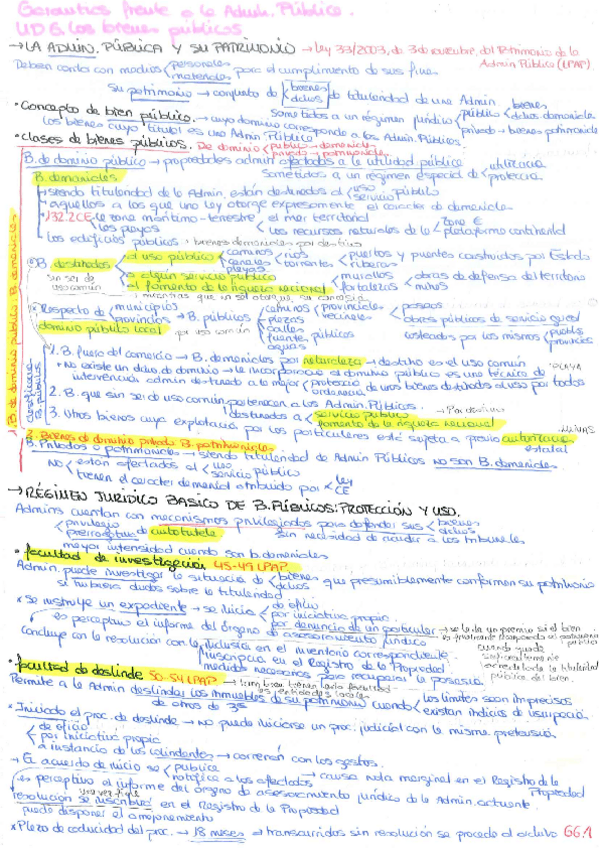 Garantías frente a la Admin. Pública.
UD 6. Los bienes públicos
→ LA ADMIN. PÚBLICA Y SU PATRIMONIO → Ley 33/2003, de 3 de noviembre, del Patrimonio de la
Admin Pública (LPAP)
Deben contar con medios personales
materiales para el cumplimiento de sus fines
su patrimonio → conjunto de bienes
dchos de titularidad de una Admin.
• Concepto de bien público.
sometidos a un régimen jurídico público
privado → bienes patrimoniales
los bienes cuyo titular es una Admin. Público
→ cuyo dominio corresponde a las Admin. Públicos.
• Clases de bienes públicos. De dominio público → demaniales
privado → patrimoniales
B. de dominio público → propiedades admin afectadas a la utilidad pública
sometidas a un régimen especial de utilización
protección
B. demaniales
siendo titularidad de la Admin. están destinados al uso
servicio público
aquellos a los que una ley otorgue expresamente el carácter de demaniales
132.2 CE la zona marítimo-terrestre, el mar territorial
las playas los recursos naturales de la zona €
plataforma continental
los edificios públicos, bienes demaniales por destino
B. destinados al uso público caminos
canales
playas ríos
torrentes puertos y puentes construidos por Estado
riberas
a algún servicio público murallas
fortalezas obras de defensa del territorio
minas
al fomento de la riqueza nacional
mientras que no se otorgue su concesión
un ser de
uso común
Respecto de municipios
provincias → B. públicos caminos
plazas
calles
fuentes públicas
aguas provinciales
vecinales paseos
obras públicas de servicio gral
costeados por los mismos pueblos
provincias
dominio público local por uso común
B. de dominio público: B. demaniales
clasificación
B. públicos
1. B. fuera del comercio → B. demaniales por naturaleza → destino es el uso común PLAYA
* No existe un dcho. de dominio → la incorporación al dominio público es una técnica de
intervención admin destinada a la mejor protección
ordenación de unos bienes destinados al uso por todos
2. B. que sin ser de uso común pertenecen a las Admin. Públicas.
destinados a servicio público
fomento de la riqueza nacional → Por destino
3. Otros bienes cuya explotación por los particulares está sujeta a previa autorización
estatal MINAS
2. Bienes de dominio privado B. patrimoniales
B. Privados o patrimoniales → siendo titularidad de Admin Públicas no son B. demaniales
NO están afectados al uso
servicio público
tienen el carácter demanial atribuido por ley
CE
→ RÉGIMEN JURÍDICO BÁSICO DE B. PÚBLICOS: PROTECCIÓN Y USO.
Admins cuentan con mecanismos privilegiados para defender sus bienes
dchos
privilegio
prerrogativa de autotutela sin necesidad de acudir a los tribunales
mayor intensidad cuando son b. demaniales
• facultad de investigación 45-49 LPAP.
Admin. puede investigar la situación de bienes
dchos que presumiblemente conformen su patrimonio
si hubiera dudas sobre la titularidad
* Se instruye un expediente → se inicia de oficio
por iniciativa propia
por denuncia de un particular → se le da un premio si el bien
es finalmente recuperado al patrimonio
público
es preceptivo el informe del órgano de asesoramiento jurídico
Concluye con la resolución con la inclusión en el inventario correspondiente
inscripción en el Registro de la Propiedad
medidas necesarias para recuperar la posesión
cuando quede
suficientemente
acreditada la titularidad
pública del bien.
• facultad de deslinde 50-54 LPAP → tmbn. tienen dicha facultad
las entidades locales
Permite a la Admin deslindar los inmuebles de su patrimonio
de otros de 3os cuando los límites sean imprecisos
existan indicios de usurpación
* Iniciado el proc. de deslinde → no puede iniciarse un proc. judicial con la misma pretensión
de oficio
por iniciativa propia
a instancia de los colindantes → correrán con los gastos.
→ El acuerdo de inicio se publica
notifica a los afectados → causa nota marginal en el Registro de la
Propiedad
es preceptivo el informe del órgano de asesoramiento jurídico de la Admin. actuante.
resolución se inscribirá en el Registro de la Propiedad
una vez firme
puede disponer el amojonamiento
* Plazo de caducidad del proc. → 18 meses → transcurridos sin resolución se procede al archivo 66.1